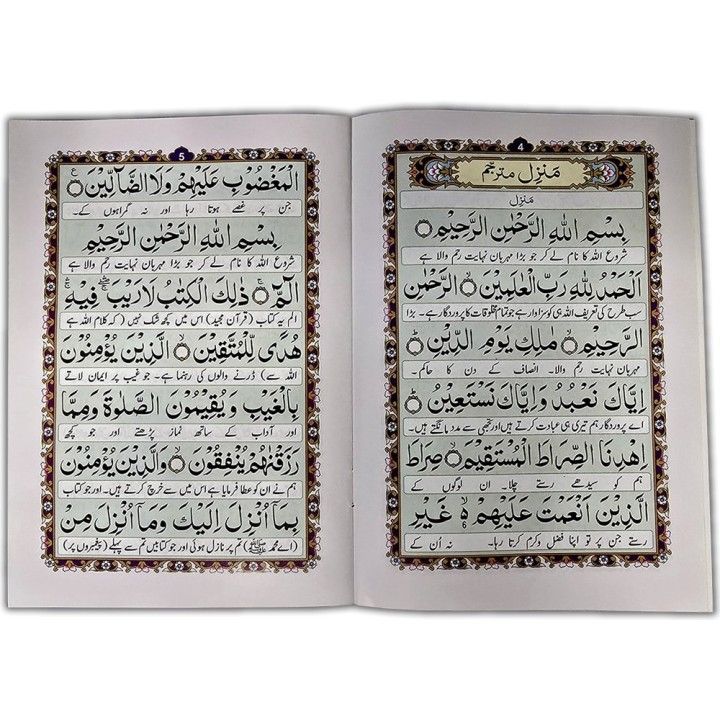 4
مَنزِل مترجم
مَنزِل
بِسْمِ اللّٰهِ الرَّحْمٰنِ الرَّحِيْمِ
شروع اللہ کا نام لے کر جو بڑا مہربان نہایت رحم والا ہے
اَلْحَمْدُ لِلّٰهِ رَبِّ الْعٰلَمِيْنَ الرَّحْمٰنِ
سب طرح کی تعریف اللہ ہی کو سزاوار ہے جو تمام مخلوقات کا پروردگار ہے۔ بڑا
الرَّحِيْمِ مٰلِكِ يَوْمِ الدِّيْنِ
مہربان نہایت رحم والا۔ انصاف کے دن کا حاکم۔
اِيَّاكَ نَعْبُدُ وَاِيَّاكَ نَسْتَعِيْنُ
اے پروردگار ہم تیری ہی عبادت کرتے ہیں اور تجھی سے مدد مانگتے ہیں۔
اِهْدِنَا الصِّرَاطَ الْمُسْتَقِيْمَ صِرَاطَ
ہم کو سیدھے رستے چلا۔ ان لوگوں کے
الَّذِيْنَ اَنْعَمْتَ عَلَيْهِمْ غَيْرِ
رستے جن پر تو اپنا فضل وکرم کرتا رہا۔ نہ اُن کے
5
الْمَغْضُوْبِ عَلَيْهِمْ وَلَا الضَّآلِّيْنَ
جن پر غصے ہوتا رہا اور نہ گمراہوں کے۔
بِسْمِ اللّٰهِ الرَّحْمٰنِ الرَّحِيْمِ
شروع اللہ کا نام لے کر جو بڑا مہربان نہایت رحم والا ہے
الٓمّٓ ذٰلِكَ الْكِتٰبُ لَا رَيْبَ فِيْهِ
الم یہ کتاب (قرآن مجید) اس میں کچھ شک نہیں (کہ کلام اللہ ہے
هُدًى لِّلْمُتَّقِيْنَ الَّذِيْنَ يُؤْمِنُوْنَ
اللہ سے) ڈرنے والوں کی رہنما ہے۔ جو غیب پر ایمان لاتے
بِالْغَيْبِ وَيُقِيْمُوْنَ الصَّلٰوةَ وَمِمَّا
اور آداب کے ساتھ نماز پڑھتے اور جو کچھ
رَزَقْنٰهُمْ يُنْفِقُوْنَ وَالَّذِيْنَ يُؤْمِنُوْنَ
ہم نے ان کو عطا فرمایا ہے اس میں سے خرچ کرتے ہیں۔ اور جو کتاب
بِمَآ اُنْزِلَ اِلَيْكَ وَمَآ اُنْزِلَ مِنْ
(اے محمد ﷺ) تم پر نازل ہوئی اور جو کتابیں تم سے پہلے (پیغمبروں پر)